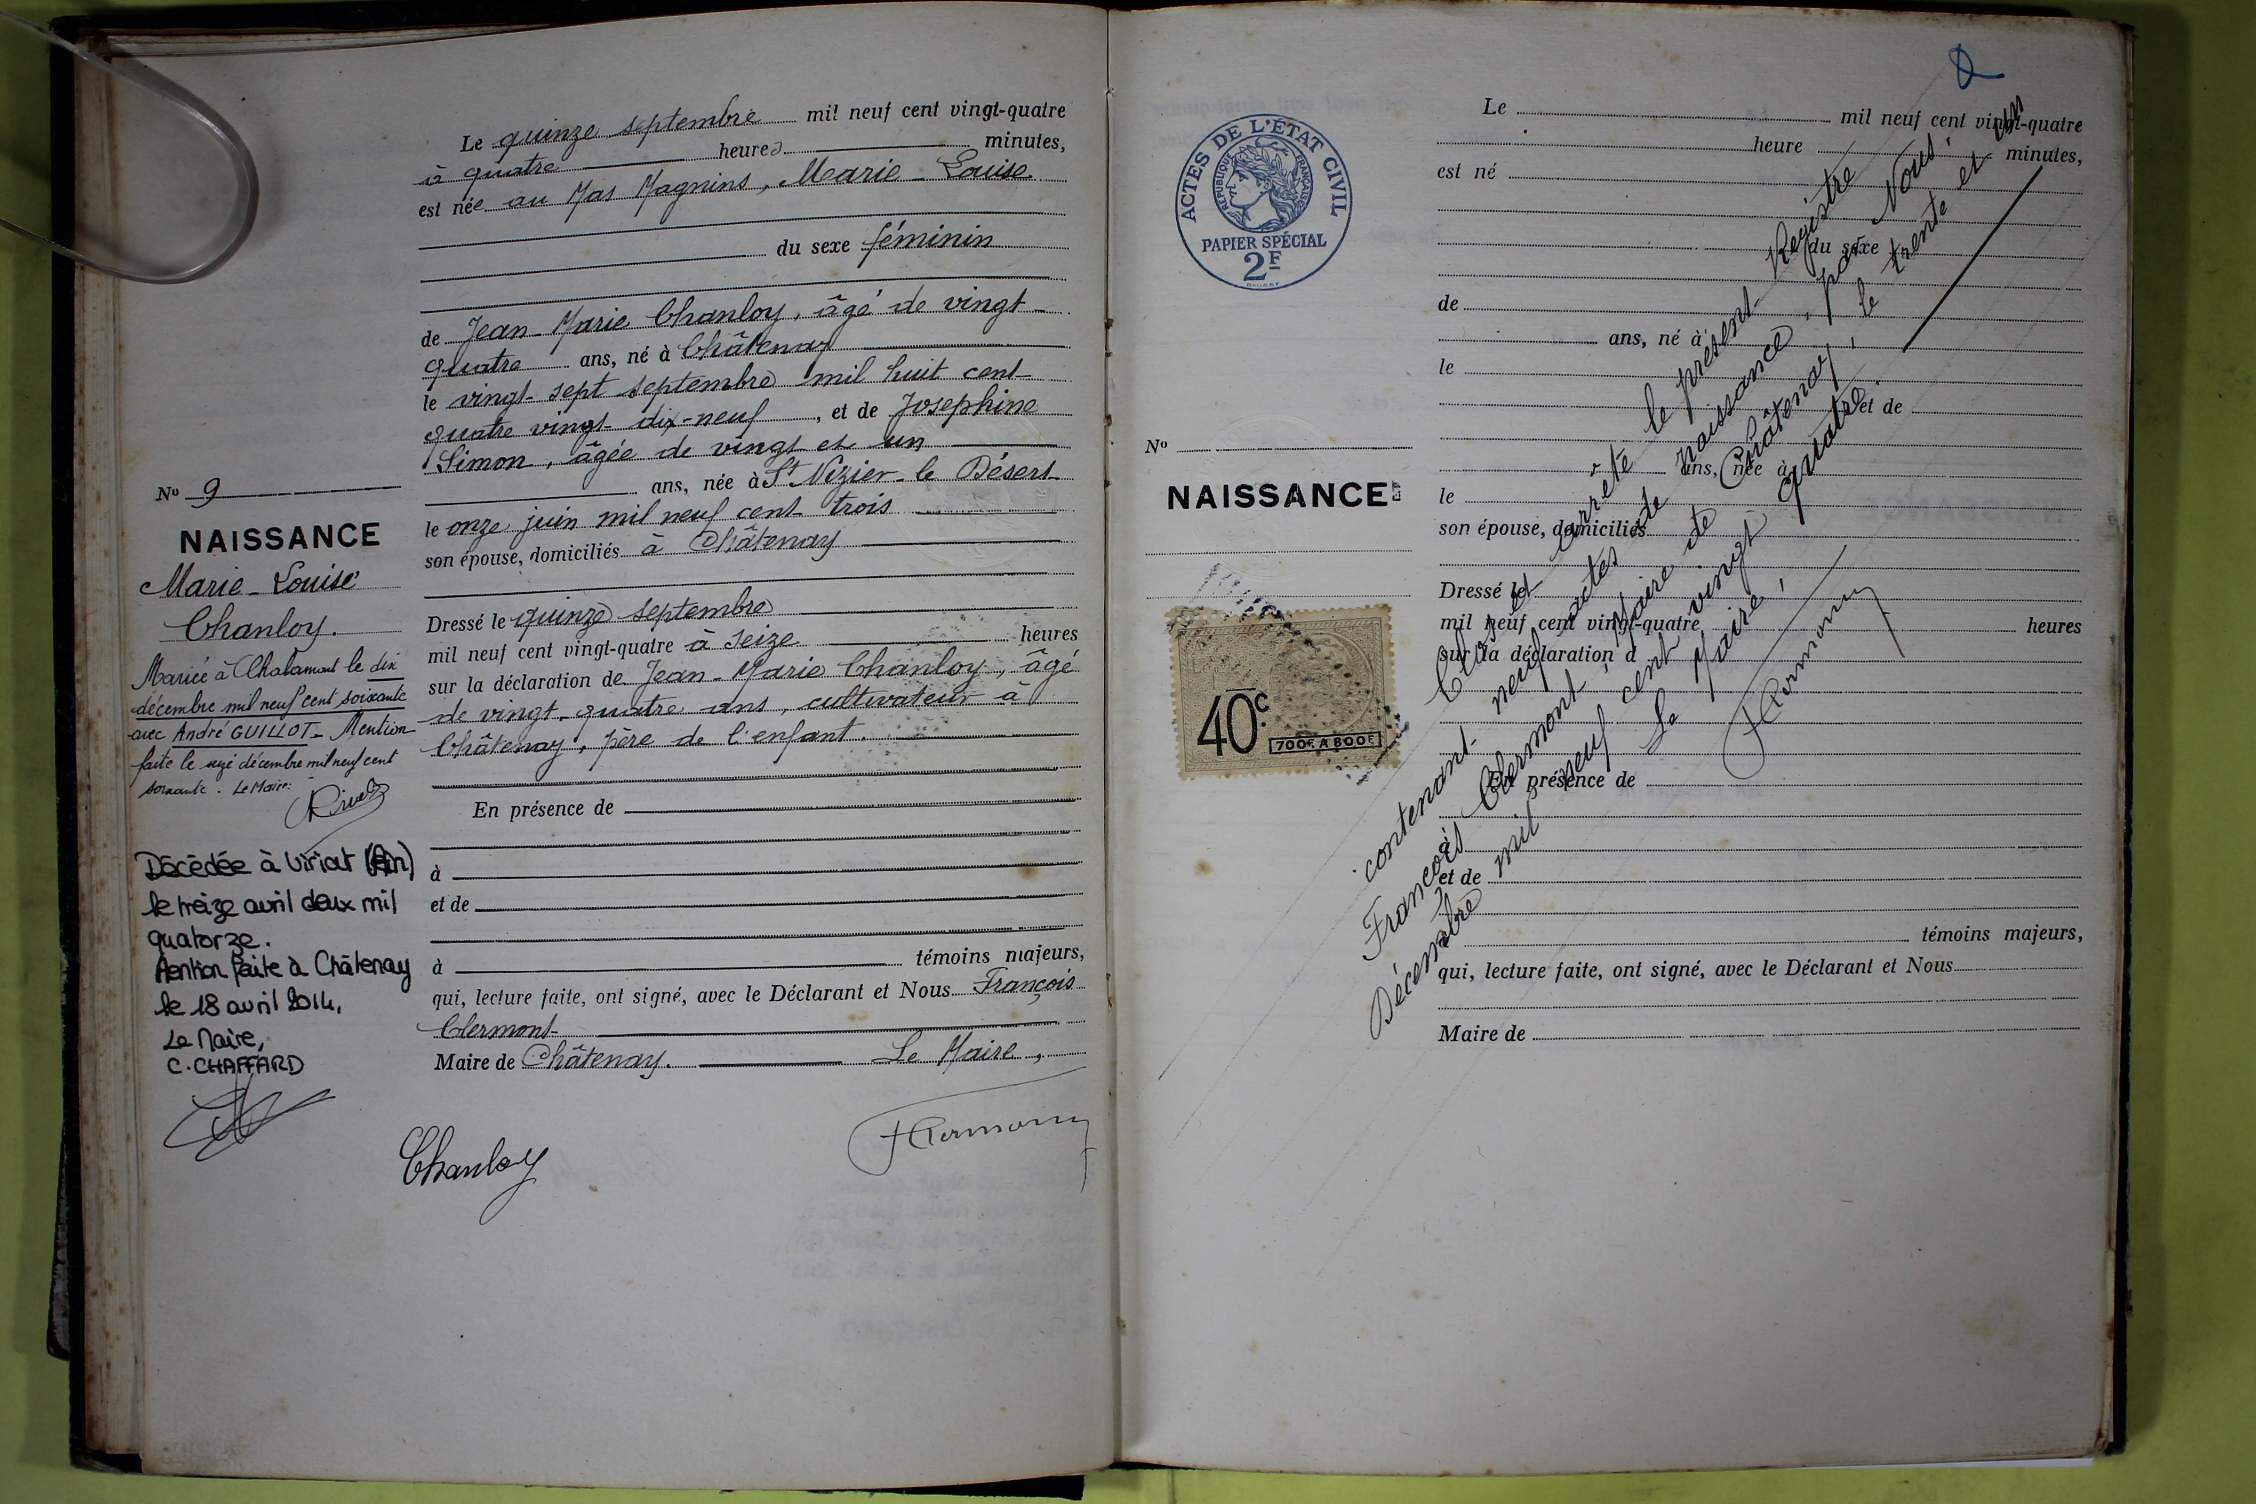 N° 9
NAISSANCE
Marie-Louise
Chanloy.
Mariée à Chalamont le dix
décembre mil neuf cent soixante
avec André GUILLOT - Mention
faite le seize décembre mil neuf cent
soixante. Le Maire:
Décédée à Viriat (Ain)
le treize avril deux mil
quatorze.
Mention faite à Châtenay
le 18 avril 2014.
Le Maire,
C. CHAFFARD
Le quinze septembre mil neuf cent vingt-quatre
à quatre heures minutes,
est née au Mas Magnins, Marie-Louise
du sexe féminin
de Jean-Marie Chanloy, âgé de vingt-
quatre ans, né à Châtenay
le vingt-sept septembre mil huit cent
quatre vingt dix-neuf, et de Josephine
Simon, âgée de vingt et un
ans, née à St Nizier-le Désert
le onze juin mil neuf cent trois
son épouse, domiciliés à Châtenay
Dressé le quinze septembre
mil neuf cent vingt-quatre à seize heures
sur la déclaration de Jean-Marie Chanloy, âgé
de vingt-quatre ans, cultivateur à
Châtenay, père de l'enfant.
En présence de
à
et de
à témoins majeurs,
qui, lecture faite, ont signé, avec le Déclarant et Nous François
Clermont
Maire de Châtenay. Le Maire,
Chanloy
FClermont
ACTES DE L'ÉTAT CIVIL
RÉPUBLIQUE FRANÇAISE
PAPIER SPÉCIAL
2F
N°
NAISSANCE
40c.
700F. A 800F.
Le mil neuf cent vingt-quatre
heure minutes,
est né
du sexe
de
ans, né à
le
et de
ans, née à
le
son épouse, domiciliés
Dressé le
mil neuf cent vingt-quatre heures
sur la déclaration d
En présence de
à
et de
à témoins majeurs,
qui, lecture faite, ont signé, avec le Déclarant et Nous
Maire de
Clos et arrêté le présent Registre
contenant neuf actes de naissance, par Nous,
François Clermont, Maire de Châtenay, le trente et un
Décembre mil neuf cent vingt quatre.
Le Maire,
FClermont